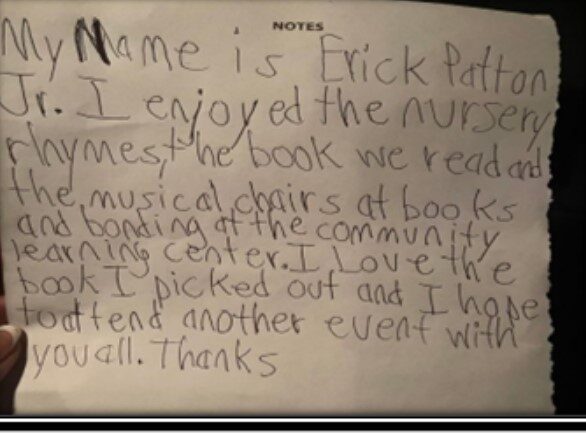 NOTES
My Name is Erick Patton
Jr. I enjoyed the nursery
rhymes, the book we read and
the musical chairs at books
and bonding at the community
learning center. I Love the
book I picked out and I hope
to attend another event with
you all. Thanks